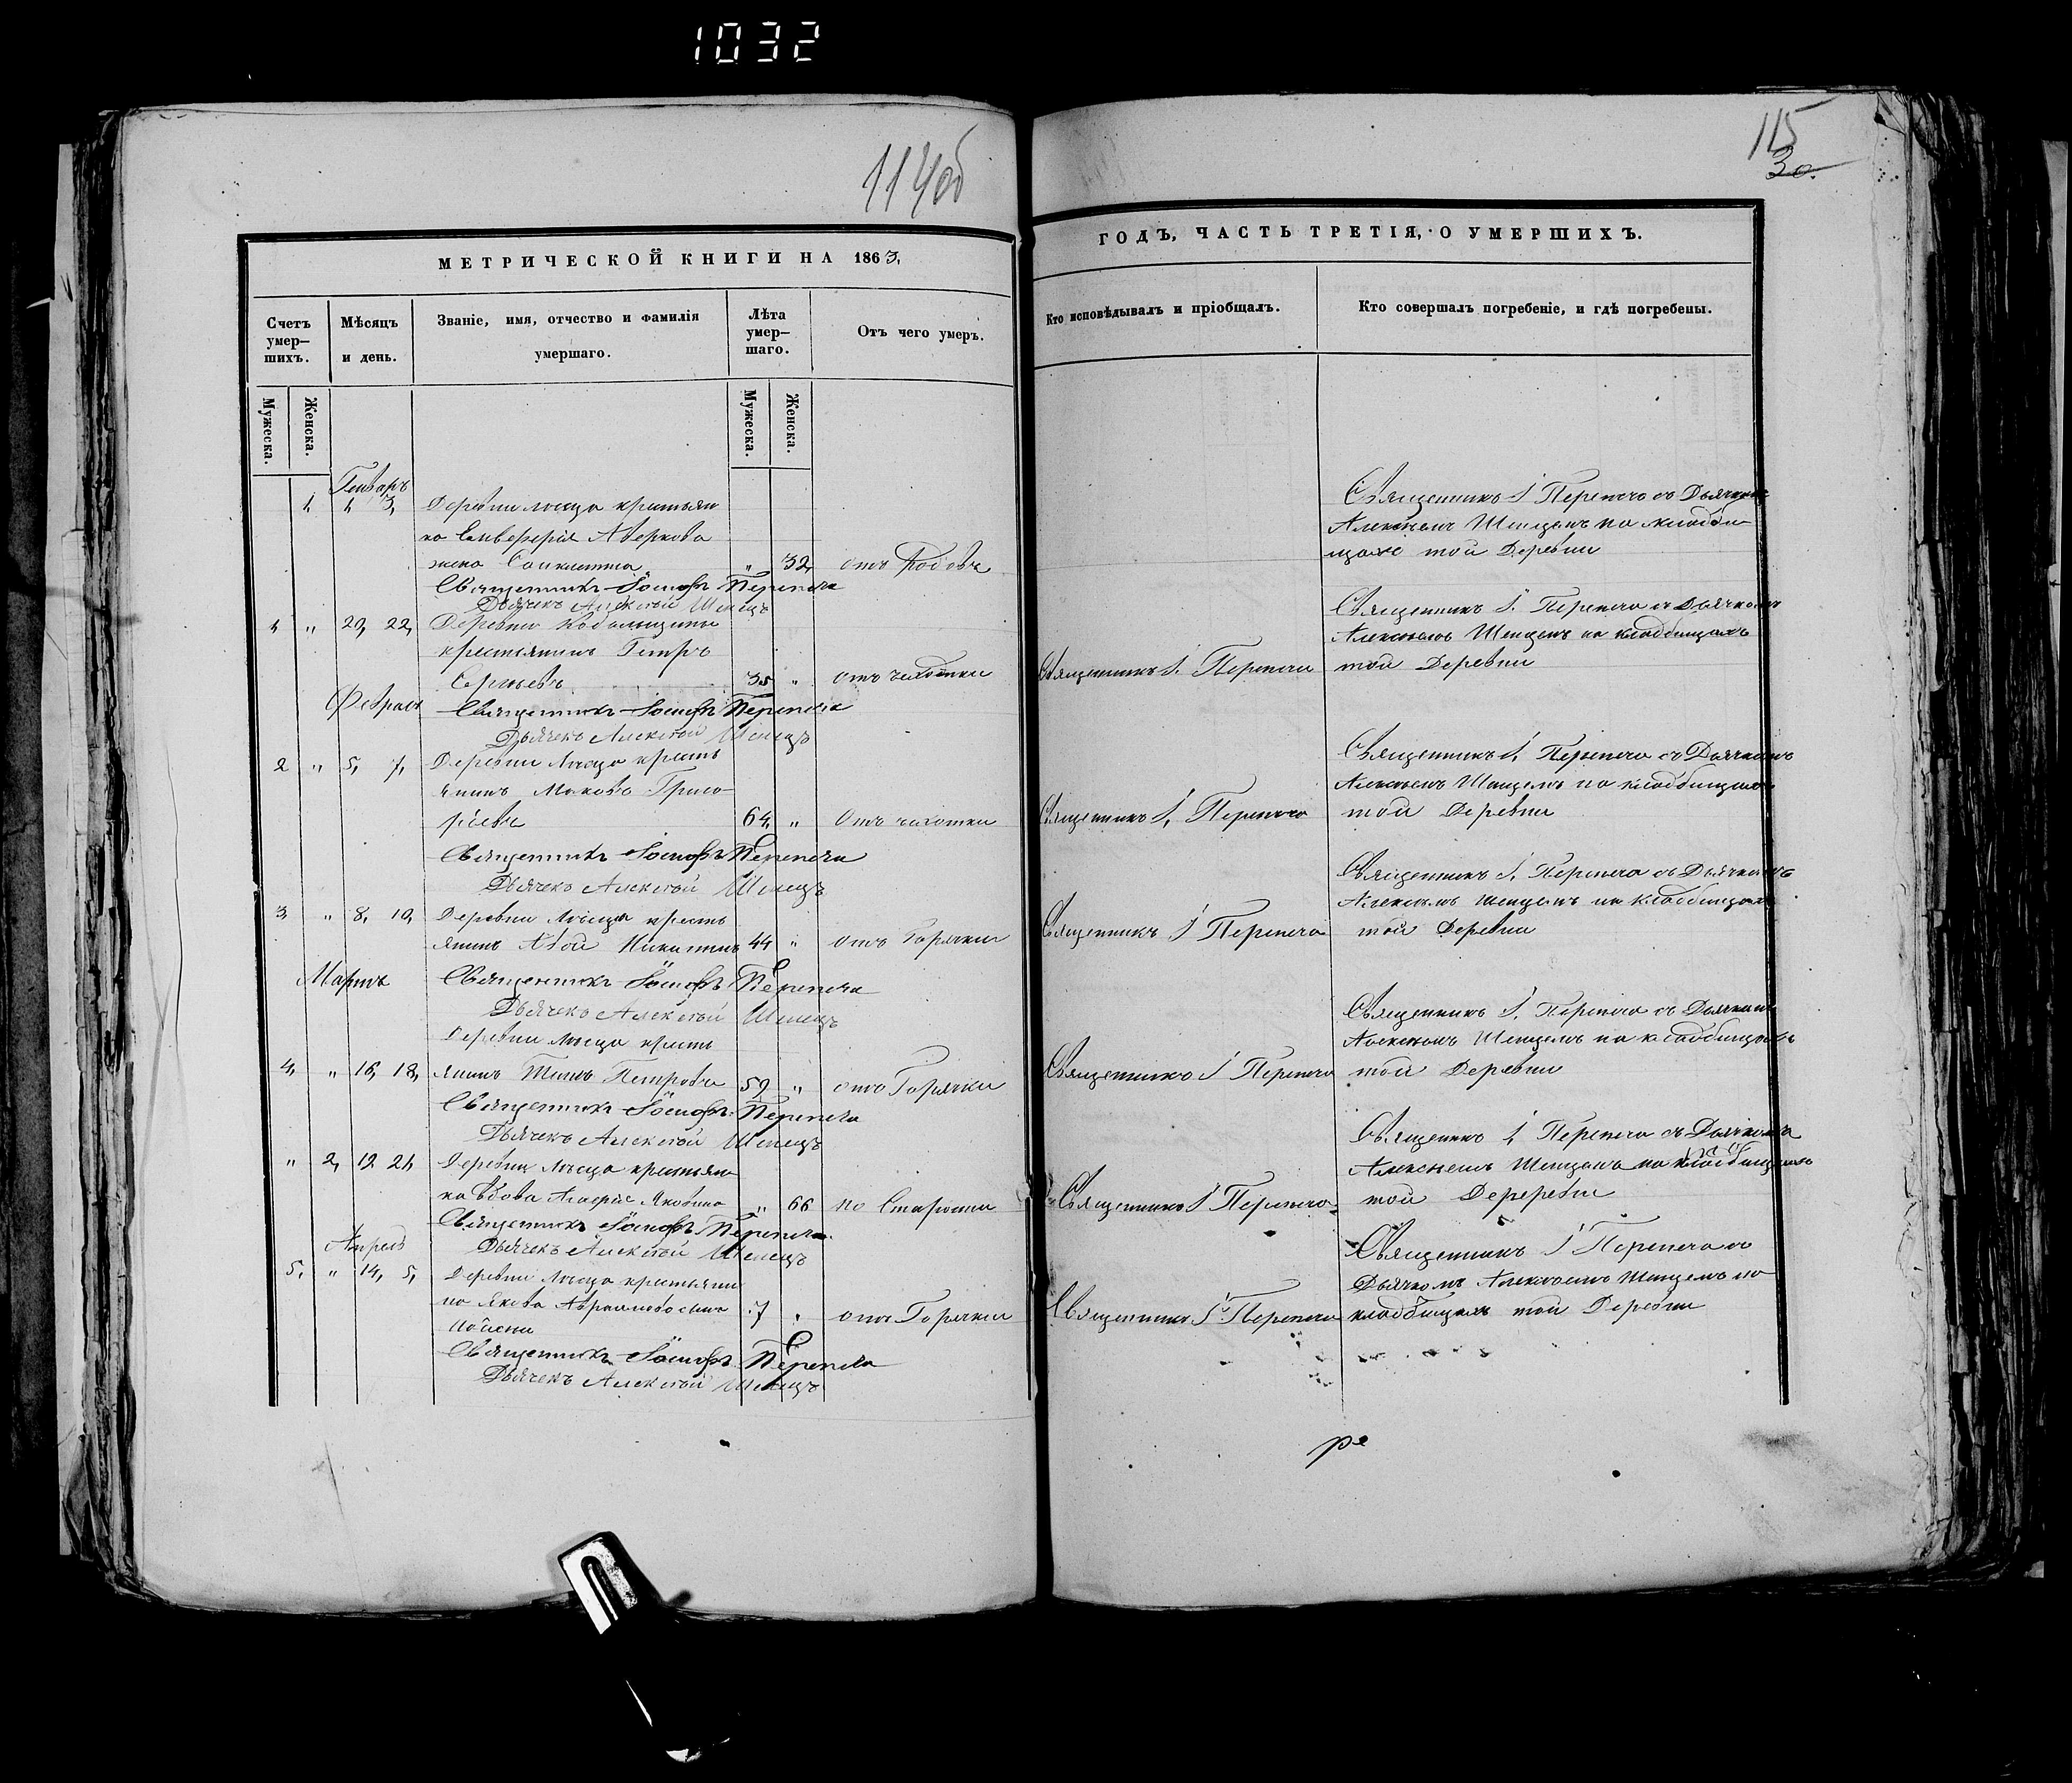 1032
114об
115
30.
МЕТРИЧЕСКОЙ КНИГИ НА 1863,
ГОДЪ, ЧАСТЬ ТРЕТІЯ, О УМЕРШИХЪ.
Счетъ умер–шихъ.
Мѣсяцъ и день.
Званіе, имя, отчество и фамилія умершаго.
Лѣта умер–шаго.
Отъ чего умеръ.
Кто исповѣдывалъ и пріобщалъ.
Кто совершалъ погребеніе, и гдѣ погребены.
Мужеска.
Женска.
Мужеска.
Женска.
Генварь
1, 1, 3, Деревни крестьян
ка Аверкова
жена " 32, отъ Родовъ
Священникъ I Перепеча съ Дьячкомъ
Алексѣемъ Шемцемъ на кладби–
щахъ той Деревни
Священникъ Іосифъ Перепеча
Дьячекъ Алексѣй
1 " 20, 22, Деревни
крестьянинъ Петръ
Сергѣевъ 35 " отъ чахотки
Священникъ I. Перепеча
Священникъ I. Перепеча съ Дьячкомъ
Алексѣемъ на кладбищахъ
той Деревни
Февраль
Священникъ Іосифъ Перепеча
Дьячекъ Алексѣй
2 " 5, 7, Деревни кресть
янинъ Григо–
рьевъ 64, " Отъ чахотки
Священникъ I, Перепеча
Священникъ I, Перепеча съ Дьячкомъ
Алексѣемъ на кладбищахъ
той Деревни
Священникъ Іосифъ Перепеча
Дьячекъ Алексѣй
3 " 8, 10, Деревни кресть
янинъ Никитинъ 44 " отъ Горячки
Священникъ I Перепеча
Священникъ I, Перепеча съ Дьячкомъ
Алексѣемъ на кладбищахъ
той Деревни
Мартъ
Священникъ Іосифъ Перепеча
Дьячекъ Алексѣй
Деревни кресть
4, " 16, 18, янинъ Петровъ 59 " отъ Горячки
Священникъ I Перепеча
Священникъ I. Перепеча съ Дьячкомъ
Алексѣемъ на кладбищахъ
той Деревни
Священникъ Іосифъ Перепеча
Дьячекъ Алексѣй
" 2, 19 21, Деревни крестьян–
ка вдова Яковлева " 66 по Старости
Священникъ I Перепеча
Священникъ I, Перепеча съ Дьячкомъ
Алексѣемъ на кладбищахъ
той Дереревни
Священникъ Іосифъ Перепеча
Апрель
Дьячекъ Алексѣй
5, " 14, 5, Деревни крестьяни
на Якова сынъ 7 " отъ Горячки
Священникъ I Перепеча
Священникъ I Перепеча съ
Дьячкомъ Алексѣемъ на
кладбищахъ той Деревни
Священникъ Іосифъ Перепеча
Дьячекъ Алексѣй
ре